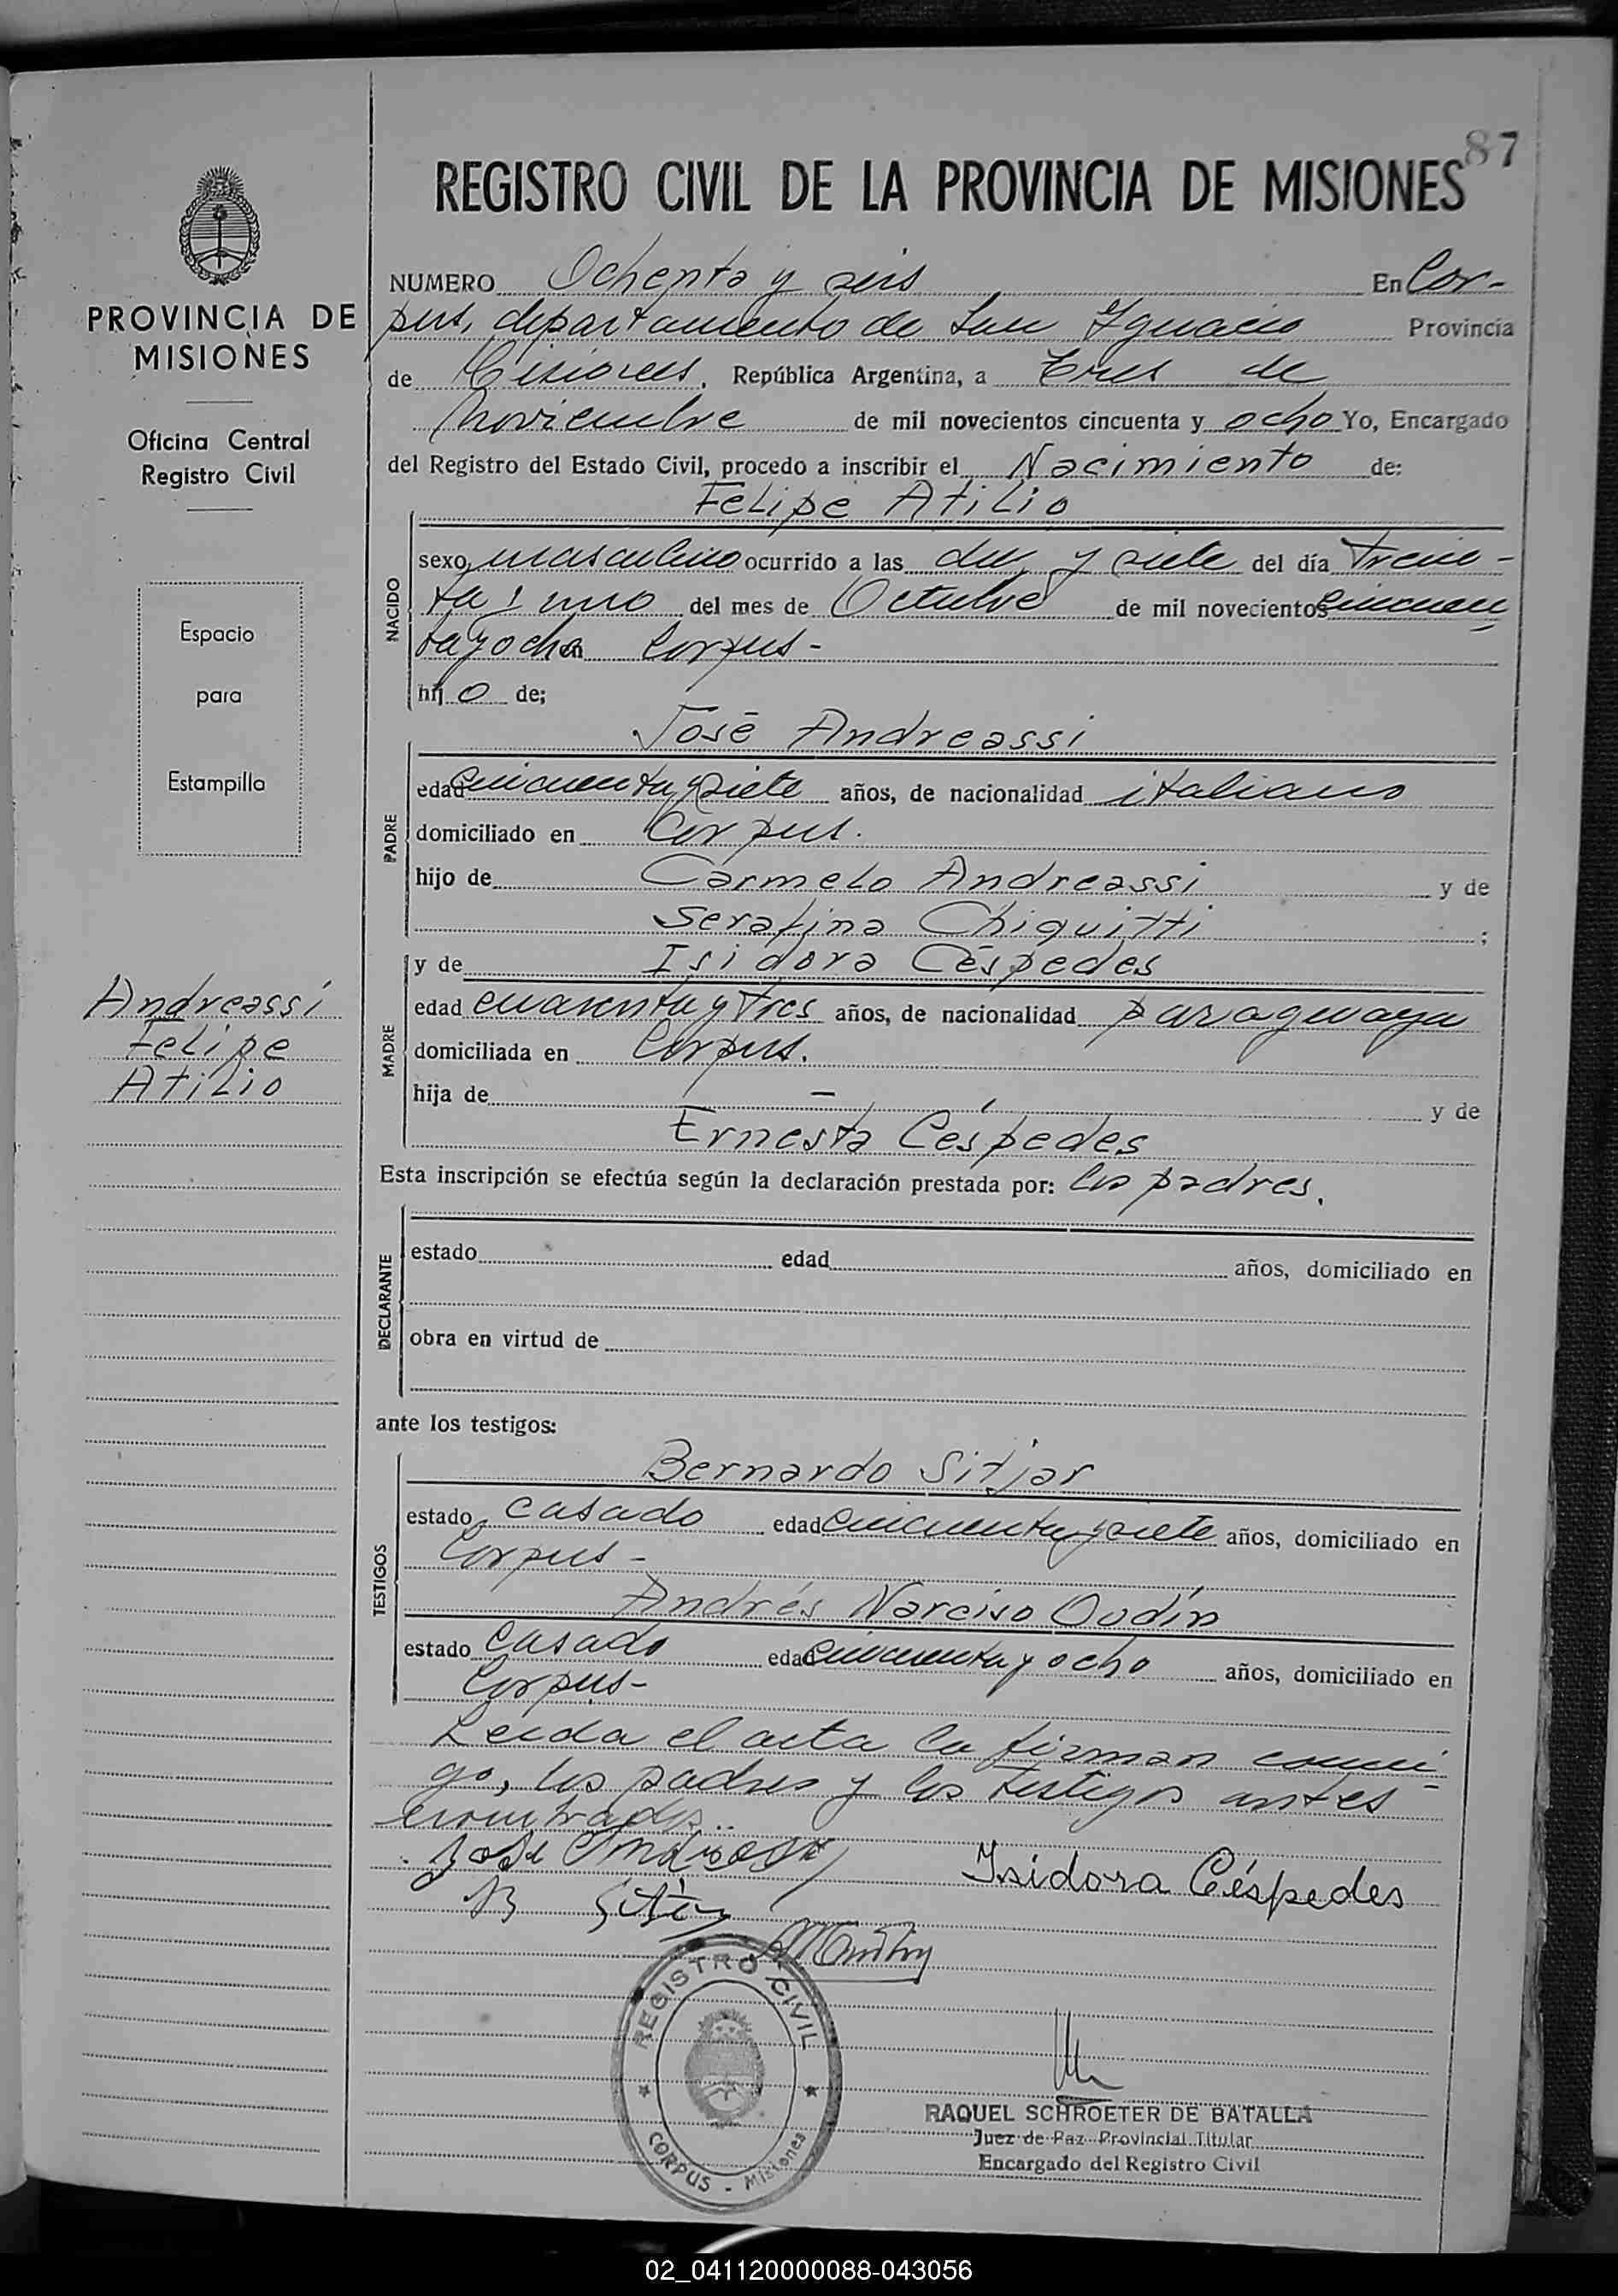 87
REGISTRO CIVIL DE LA PROVINCIA DE MISIONES
PROVINCIA DE
MISIONES
Oficina Central
Registro Civil
Espacio
para
Estampilla
Andreassi
Felipe
Atilio
NUMERO Ochenta y seis En Cor-
pus, departamento de San Ignacio Provincia
de Misiones, República Argentina, a tres de
noviembre de mil novecientos cincuenta y ocho Yo, Encargado
del Registro del Estado Civil, procedo a inscribir el Nacimiento de:
Felipe Atilio
NACIDO
sexo masculino ocurrido a las diez y siete del día trein-
ta y uno del mes de Octubre de mil novecientos cincuen
ta y ocho en Corpus-
hijo de;
José Andreassi
PADRE
edad cincuenta y siete años, de nacionalidad italiano
domiciliado en Corpus.
hijo de Carmelo Andreassi y de
Serafina Chiquitti ;
y de Isidora Céspedes
MADRE
edad cuarenta y tres años, de nacionalidad paraguaya
domiciliada en Corpus.
hija de — y de
Ernesta Céspedes
Esta inscripción se efectúa según la declaración prestada por: los padres.
DECLARANTE
estado edad años, domiciliado en
obra en virtud de
ante los testigos:
TESTIGOS
Bernardo Sitjar
estado casado edad cincuenta y siete años, domiciliado en
Corpus-
Andrés Narciso Oudín
estado casado edad cincuenta y ocho años, domiciliado en
Corpus-
Leida el acta la firman conmi-
go, los padres y los testigos antes
nombrados..
José Andreassi
Isidora Céspedes
B Sitjar
REGISTRO CIVIL
CORPUS - Misiones
RAQUEL SCHROETER DE BATALLA
Juez de Paz Provincial Titular
Encargado del Registro Civil
02_041120000088-043056